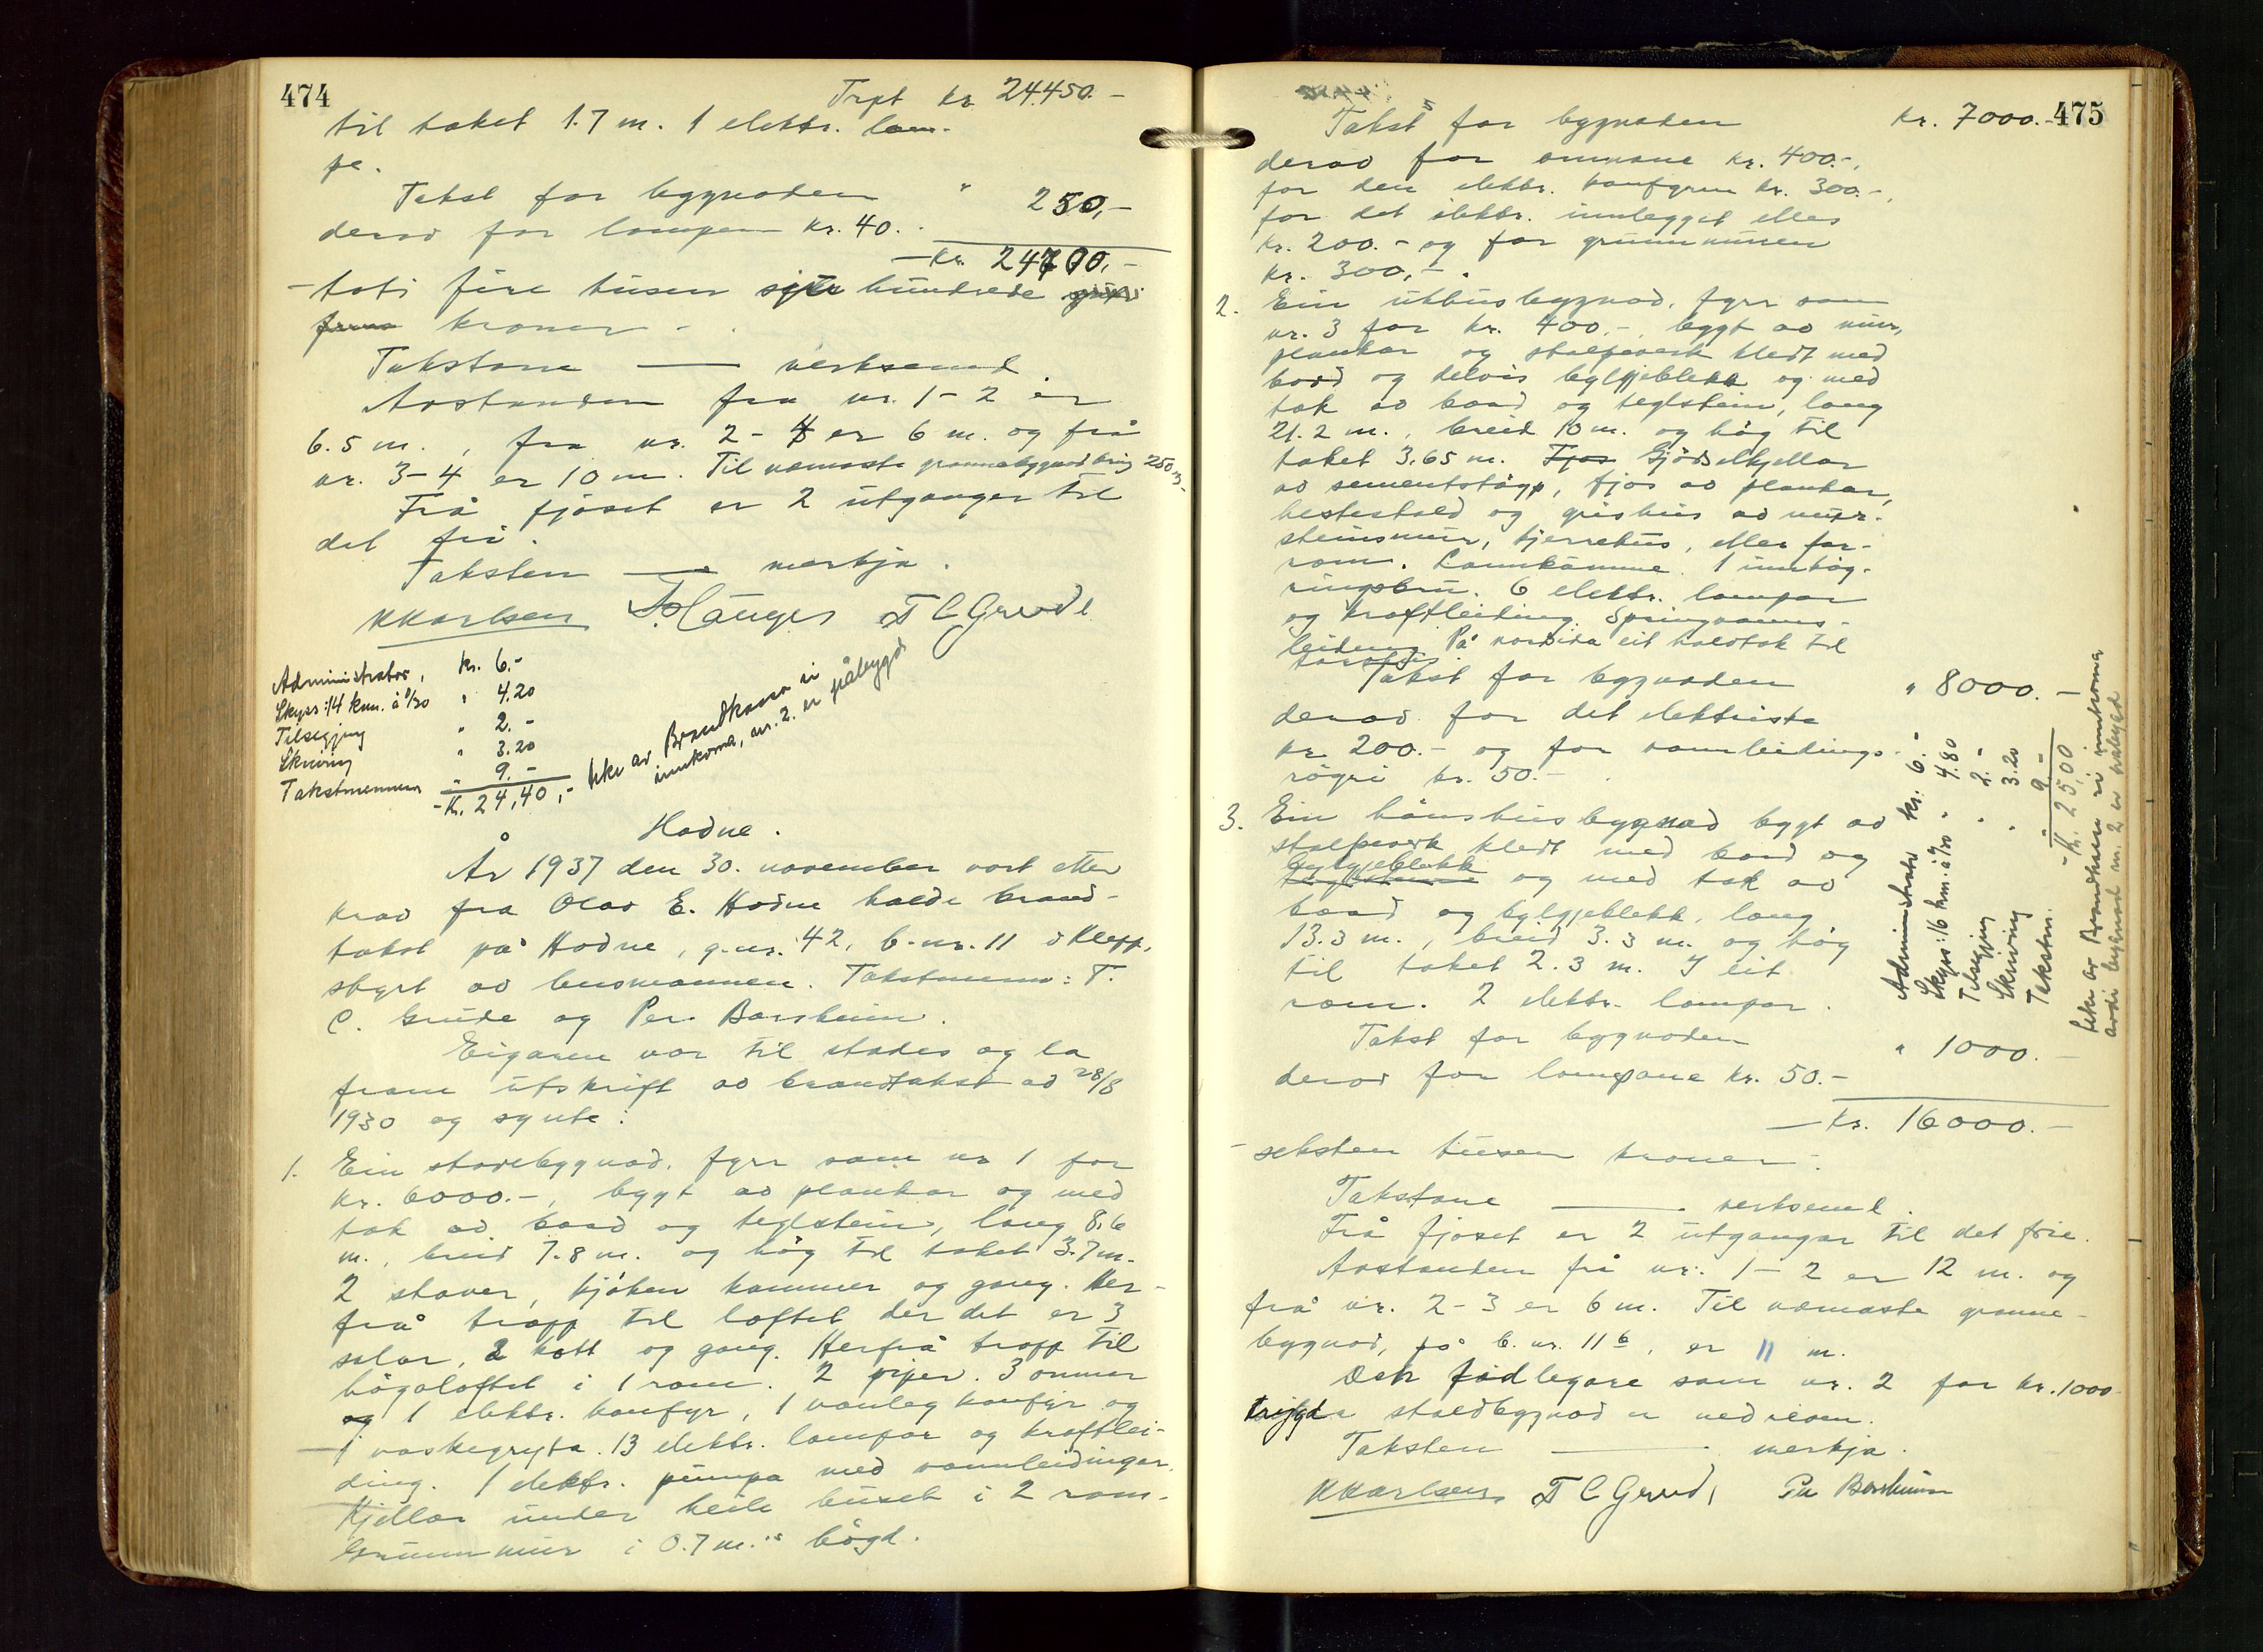 474
Trpt kr. 24.450.-
til taket 1.7 m. 1 elektr. lam-
pe.
Takst for bygnaden " 250,-
derav for lampen kr. 40.-
- kr. 24700,-
- toti fire tusen sju hundrede
kroner -.
Takstane — verksemd.
Avstanden fra nr. 1-2 er
6.5 m., fra nr. 2-4 er 6 m. og frå
nr. 3-4 er 10 m. Til næmaste grannebygnad kring 250 m.
Frå fjøset er 2 utganger til
det fri.
Taksten — merkja.
K Karlsen T C Grude
Administrator, kr. 6.-
Skyss: 14 km. à 0/30 " 4.20
Tilsegjing " 2.-
Skriving " 3.20
Takstmennene " 9.-
- Kr. 24,40,-
Ikr. av Brandkassa ei
innkoma, nr. 2. er påbygd
Hodne.
År 1937 den 30. november vart etter
krav fra Olav E. Hodne halde brand-
takst på Hodne, g.nr. 42, b.nr. 11 i Klepp,
styrt av lensmannen. Takstmenn: T.
C. Grude og Per Borsheim.
Eigaren var til stades og la
fram utskrift av brandtakst av 28/8
1930 og synte:
1. Ein stovebygnad, fyrr som nr 1 for
kr. 6000.-, bygt av plankar og med
tak av bord og teglstein, lang 8.6
m., breid 7.8 m. og høg til taket 3.7 m.
2 stover, kjøken kammer og gang. Her-
frå tropp til loftet der det er 3
salar, 2 kott og gang. Herfrå tropp til
høgaloftet i 1 rom. 2 piper. 3 omner
og 1 elektr. komfyr, 1 vanleg komfyr og
1 vaskegryta. 13 elektr. lampor og kraftlei-
ding. 1 elektr. pumpa med vannleidingar.
Kjellar under heile huset i 2 rom.
Grunnmur i 0.7 m.s høgd.
475
Takst for bygnaden kr. 7000.-
derav for omnane kr. 400.-,
for den elektr. komfyren kr. 300.-,
for det elektr. innlegget elles
kr. 200.- og for grunnmuren
kr. 300,-.
2. Ein uthusbygnad, fyrr som
nr. 3 for kr. 400.-, bygt av mur,
plankar og stolpeverk kledt med
bord og delvis bylgjeblekk og med
tak av bord og teglstein, lang
21.2 m., breid 10 m. og høg til
taket 3.65 m. Fjøs Gjødselkjellar
av sementstøyp, fjøs av plankar,
hestestald og grishus av mur-
steinsmur, kjerrehus, elles for-
rom. Lannkumme. 1 innkøy-
ringsbru. 6 elektr. lampor
og kraftleiding. Springvanns-
leiding. På nordsida eit halvtak til
Takst for bygnaden " 8000.-
derav for det elektriske
kr. 200.- og for vannleidings-
røyri kr. 50.-.
3. Ein hønshusbygnad bygt av
stolpeverk kledt med bord og
bylgjeblekk og med tak av
bord og bylgjeblekk, lang
13.3 m., breid 3.3 m. og høg
til taket 2.3 m. I eit
rom. 2 elektr. lampor.
Takst for bygnaden " 1000.-
derav for lampone kr. 50.-
- kr. 16000.-
- seksten tusen kroner -.
Takstane — verksemd.
Frå fjøset er 2 utgangar til det frie.
Avstanden frå nr. 1-2 er 12 m. og
frå nr. 2-3 er 6 m. Til næmaste granne-
bygnad, på b.nr. 11 b, er 11 m.
Den fødlegare som nr. 2 for kr. 1000.-
trygda staldbygnad er nedriven.
Taksten — merkja.
K Karlsen T C Grude Per Borsheim
Administrator kr. 6.-
Skyss: 16 km. à 0/30 " 4.80
Tilsegjing " 2.-
Skriving " 3.20
Takstm. " 9.-
- Kr. 25,00
Ikr. av Brandkassa ei innkoma
avdi bygnad nr. 2 er påbygd